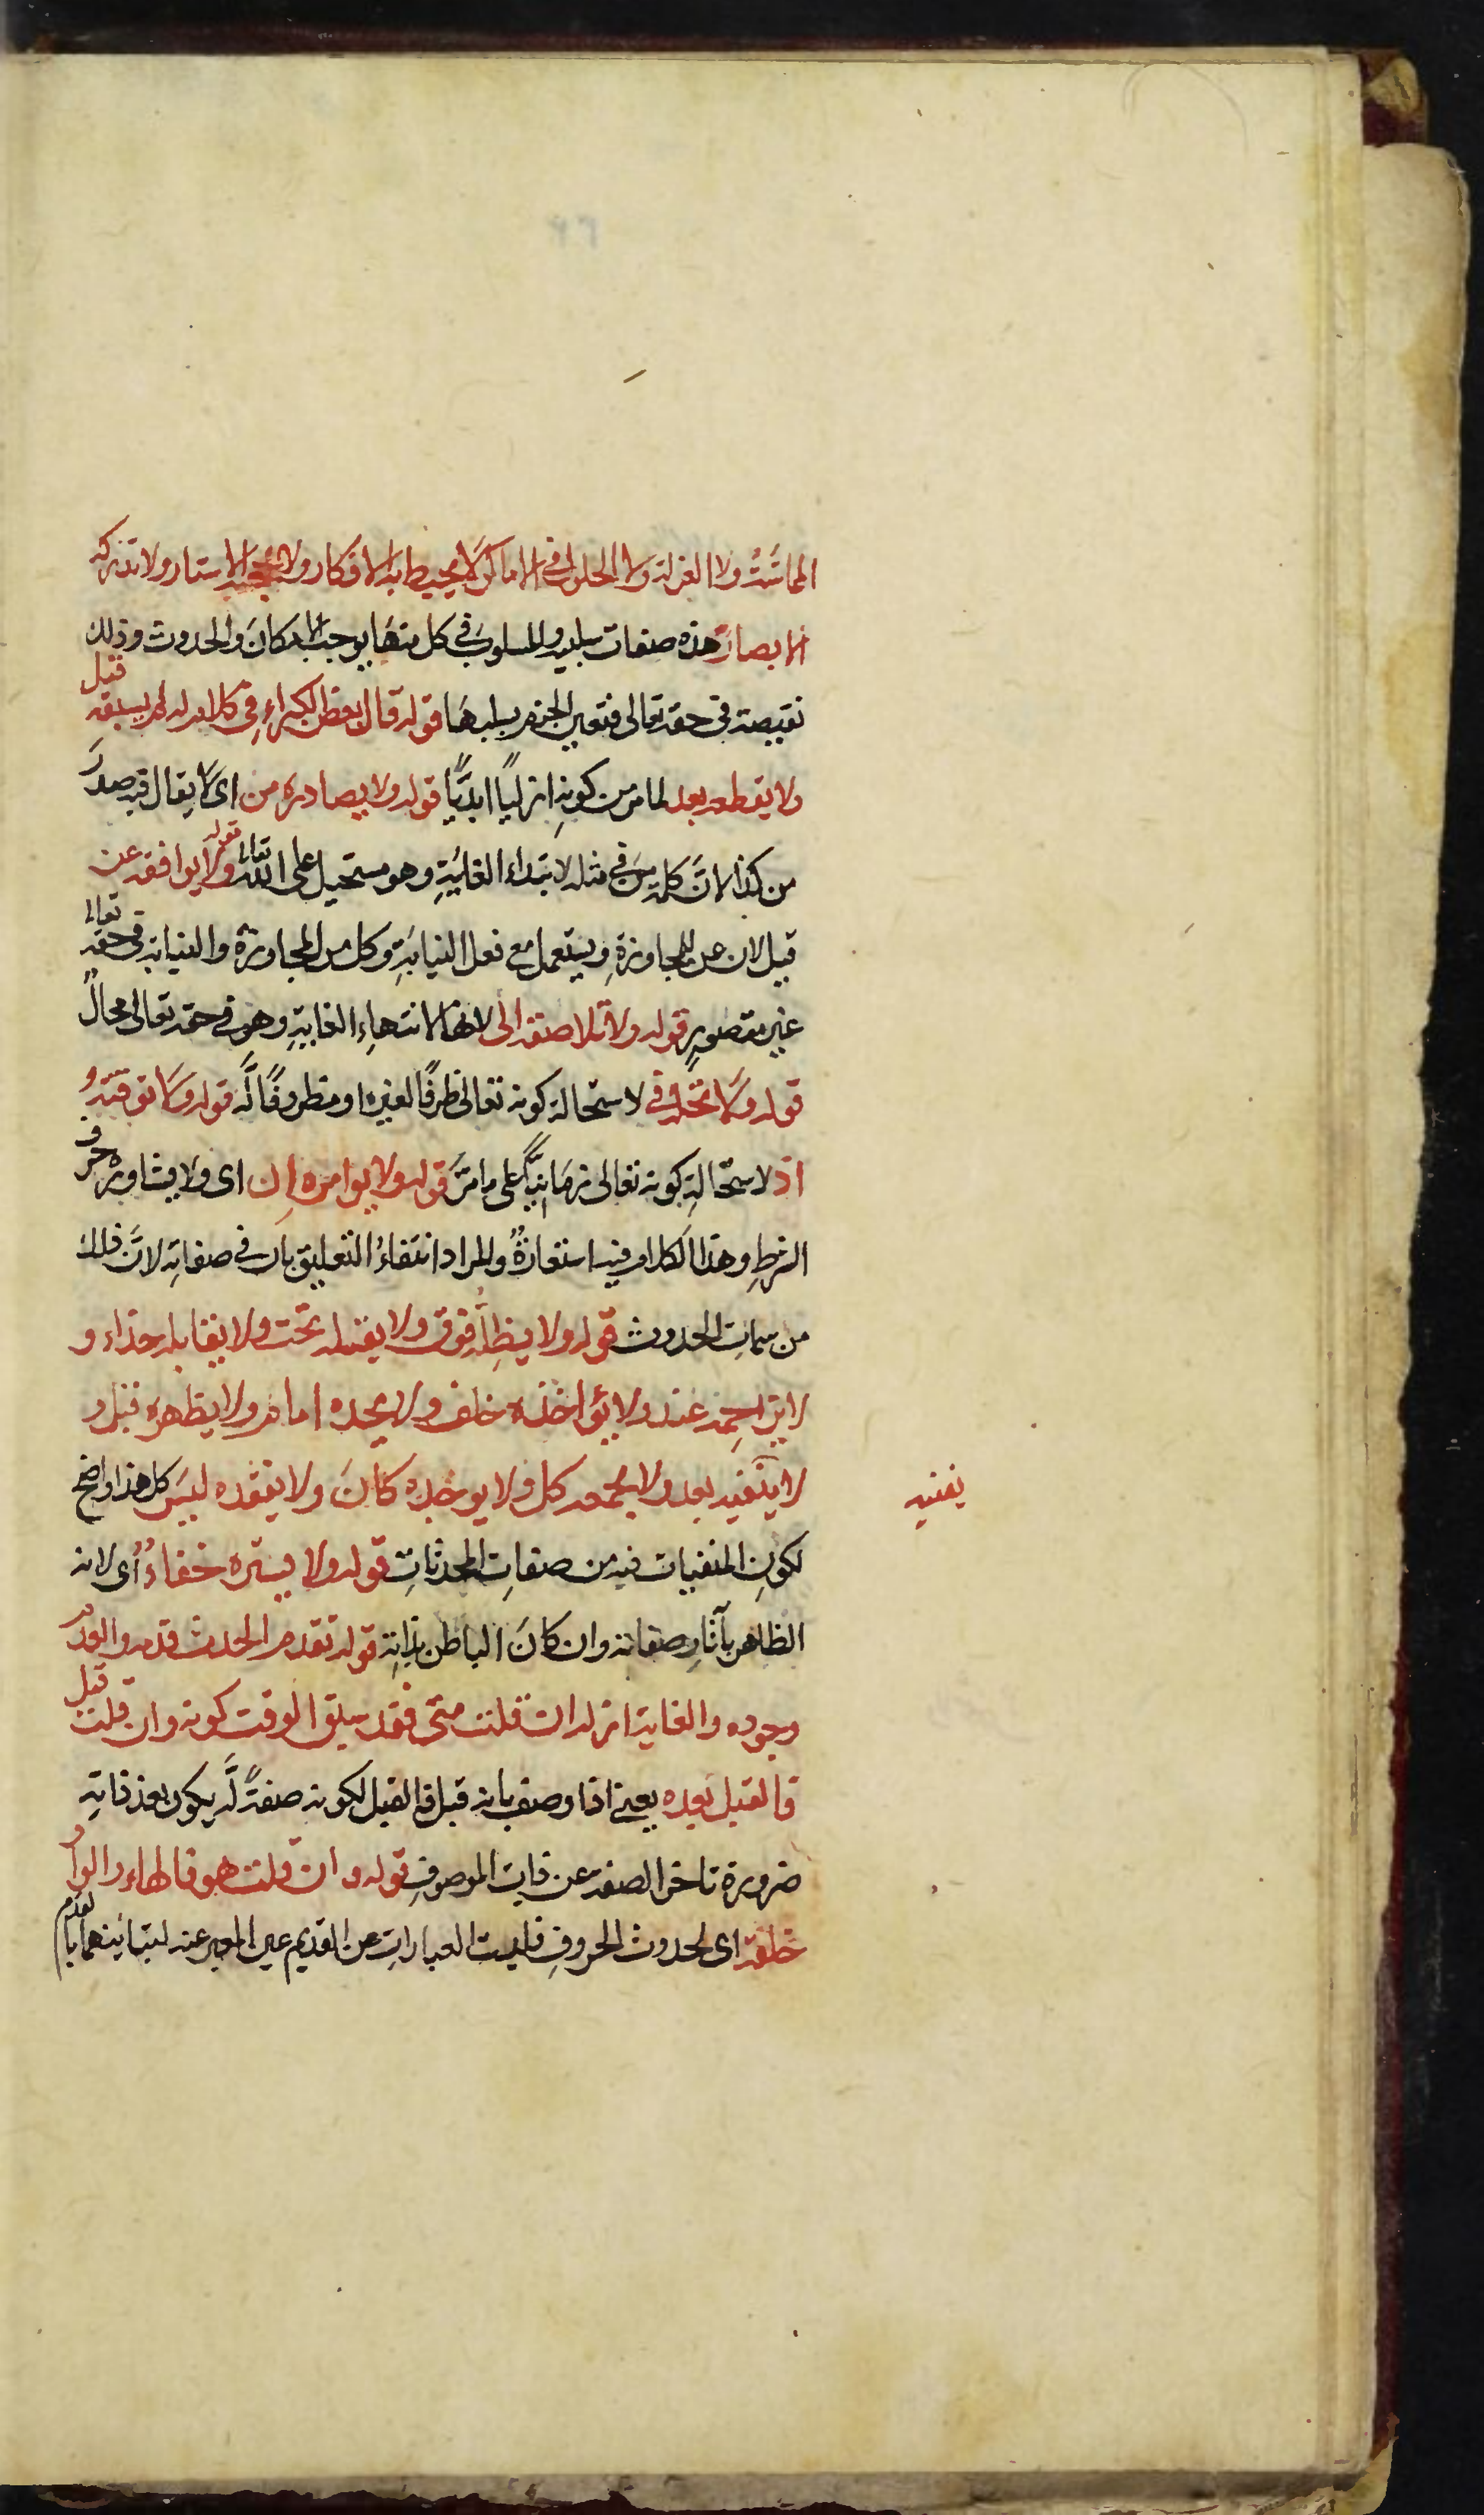 المماسَّة ولا العزلة ولا الحلول في الاماكن لا يحيط به الافكار ولا تحجبه الاستار ولا تدركه
الابصار هذه صفات سلبية والمسلوب في كل منها يوجب الامكان والحدوث وذلك
نقيصة في حقه تعالى فتعين الجزم بسلبها قوله قال بعض الكبراء في كلام له لم يسبقه قبل
ولا يقطعه بعد لما مر من كونه ازليًا ابديًّا قوله ولا يصادره من اى لا يقال فيه صدر
من كذا لانّ كلمة من في مثله لابتداء الغاية وهو مستحيل على الله تعالى قوله ولا يوافقه عن
قيل لان عن للمجاوزة ويستعمل مع فعل النيابة وكل من المجاوزة والنيابة في حقه تعالى
غير متصور قوله ولا تلاصقه الى لانها لانتهاء الغاية وهو في حقه تعالى محالٌ
قوله ولا تحله في لاستحالة كونه تعالى ظرفًا لغيره او مظروفًا لَه قوله ولا توقته
اذ لاستحالة كونه تعالى زمانيًّا على ما مرَّ قوله ولا يوامره اِن اى ولا يشاوره حرف
الشرط وهذا الكلام فيه استعارةٌ والمراد انتفاءُ التعليق بان في صفاته لانَّ ذلك
من سمات الحدوث قوله ولا يظلّه فوق ولا يقله تحت ولا يقابله حذاء و
لا يزاحمه عند ولا يؤاخذه خلف ولا يحده امام ولا يظهره قبل و
لا يفنيه بعد ولا يجمعه كل ولا يوجده كانَ ولا يفقده ليسَ كل هذا واضح
يفنيه
لكونِ المنفيات فيه من صفاتِ المحدثاتِ قوله ولا يستره خفاءٌ اى لانه
الظاهر بآثارِ صفاته وان كانَ الباطن بذاته قوله تقدم الحدث قدمه والعدم
وجوده والغاية ازله ان قلت متى فقد سبق الوقت كونه وان قلت قبل
فالقبل بعده يعنى اذا وصف بانه قبل فالقبل لكونه صفةً لَه يكون بعد ذاتِه
ضرورة تاخر الصفة عن ذات الموصوفِ قوله وان قلت هو فالهاء والواو
خلقه اى لحدوث الحروفِ فليست العبارات عن القديم عين المعبر عنه لتباينهما بالقدم